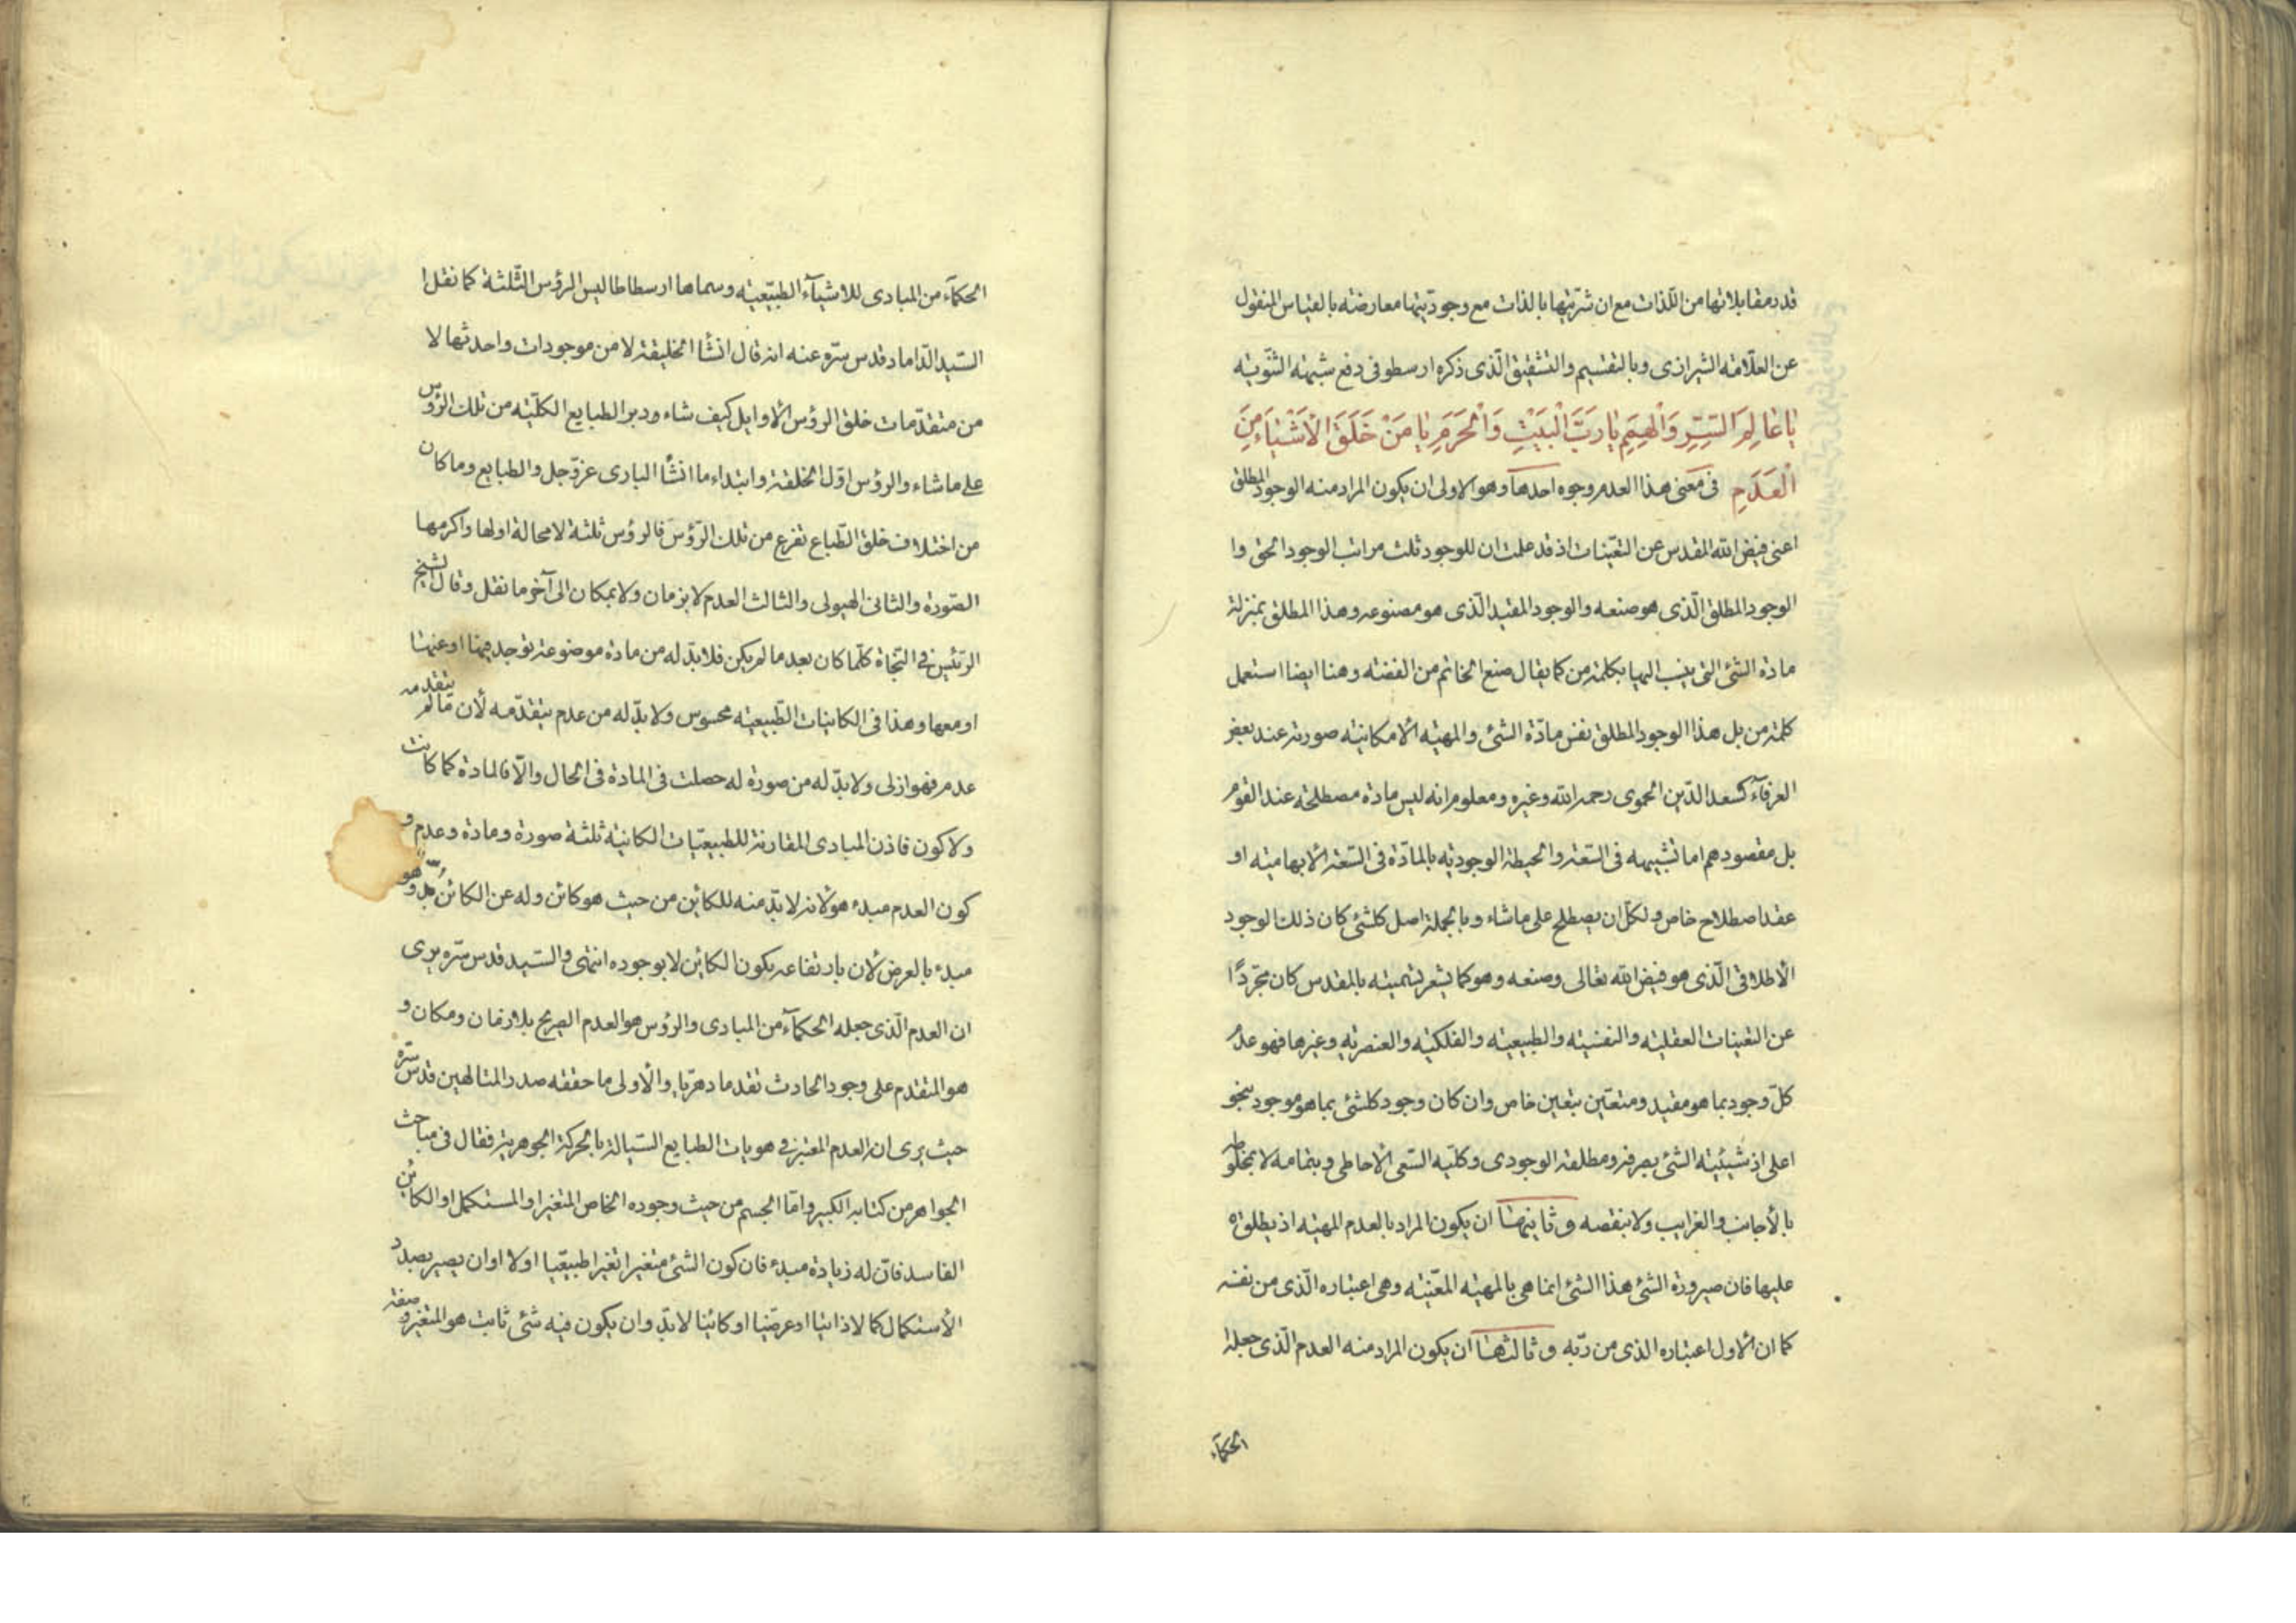 قدر مقابلاتها من اللذات مع ان شريتها بالذات مع وجوديتها معارضته بالقياس المنقول
عن العلامه الشيرازى وبالتقسيم والتشقيق الّذى ذكره ارسطو فى دفع شبهه الثنويه
يا عالِمَ السِّرِّ وَالْهِمَمِ يا رَبَّ الْبَيْتِ وَالْحَرَمِ يا مَنْ خَلَقَ الْأَشْيآءَ مِنَ
الْعَدَمِ فى معنى هذا العدم وجوه احدها وهو الاولى ان يكون المراد منه الوجود المطلق
اعنى فيض الله المقدس عن التعينات اذ قد علمت ان للوجود ثلث مراتب الوجود الحق وا
الوجود المطلق الّذى هو صنعه والوجود المقيد الّذى هو مصنوعه وهذا المطلق بمنزلة
مادة الشئ التى ينسب اليها بكلمة من كما يقال صنع الخاتم من الفضه وهنا ايضا استعمل
كلمة من بل هذا الوجود المطلق نفس مادّة الشئ والمهيه الامكانيه صورته عند بعض
العرفآء كسعد الدّين الحموى رحمه الله وغيره ومعلوم انه ليس مادة مصطلحة عند القوم
بل مقصودهم اما تشبيهه فى السعة والحيطة الوجوديه بالمادّة فى السّعة الابهاميه او
عقد اصطلاح خاص ولكل ان يصطلح على ماشاء وبالجملة اصل كلشئ كان ذلك الوجود
الاطلاقى الّذى هو فيض الله تعالى وصنعه وهو كما يشعر تسميته بالمقدس كان مجرّدًا
عن التعينات العقليه والنفسيه والطبيعيه والفلكيه والعنصريه وغيرها فهو عدم
كلّ وجود بما هو مقيد ومتعيّن بتعين خاص وان كان وجود كلشئ بما هو موجود بنحو
اعلى اذ شيئيه الشئ بصرفه ومطلقه الوجودى وكليه السعى الاحاطى وبتمامه لا بمخلوطه
بالأجانب والغرايب ولا بنقصه وثانيها ان يكون المراد بالعدم المهيه اذ يطلق ه
عليها فان صيرورة الشئ هذا الشئ انما هى بالمهيه المعيّنه وهى اعتباره الّذى من نفسه
كما ان الاول اعتباره الذى من ربّه وثالثها ان يكون المراد منه العدم الّذى جعله
الحكمآء
الحكمآء من المبادى للاشيآء الطبيعيه وسماها ارسطاطاليس الرؤس الثّلثة كما نقل ا
السّيد الدّاماد قدس سرّه عنه انه قال انشأ الخليقة لا من موجودات واحدثها لا
من متقدّمات خلق الرؤس الاوايل كيف شاء ودبر الطبايع الكلّيه من تلك الرؤس
على ماشاء والرؤس اوّل الخلقة وابتداء ما انشأ البارى عزّ وجل والطبايع وما كان
من اختلاف خلق الطّباع تفرع من تلك الرّؤس فالرؤس ثلثة لامحالة اولها واكرمها
الصّورة والثانى الهيولى والثالث العدم لا بزمان ولا بمكان الى آخر ما نقل وقال الشيخ
الرئيس فى النّجاة كلّما كان بعد ما لم يكن فلابدّ له من مادة موضوعة توجد فيها او عنها
او معها وهذا فى الكاينات الطّبيعيه محسوس ولا بدّ له من عدم يتقدّمه لأن ما لم يتقدمه
عدم فهو ازلى ولا بدّ له من صورة له حصلت فى المادة فى الحال والّا فالمادة كما كانت
ولا كون فاذن المبادى المقارنة للطبيعيّات الكاينه ثلثة صورة ومادة وعدم و
كون العدم مبدء هو لانه لا بدّ منه للكاين من حيث هو كائن وله عن الكائن بدّ وهو
مبدء بالعرض لان بارتفاعه يكون الكاين لا بوجوده انتهى والسّيد قدس سرّه يرى
ان العدم الّذى جعله الحكمآء من المبادى والرؤس هو العدم الصريح بلا زمان ومكان و
هو المتقدم على وجود الحادث تقدما دهريّا والاولى ما حققه صدر المتالهين قدس سرّه
حيث يرى ان العدم المعتبر فى هويات الطبايع السّيالة بالحركة الجوهرية فقال فى مباحث
الجواهر من كتابه الكبير وامّا الجسم من حيث وجوده الخاص المتغير او المستكمل او الكائن
الفاسد فان له زيادة مبدء فان كون الشئ متغيرا تغيرا طبيعيّا اولا او ان يصير بصدد
الاستكمال كمالا ذاتيا او عرضيا او كائنا لا بدّ وان يكون فيه شئ ثابت هو المتغير وصفة